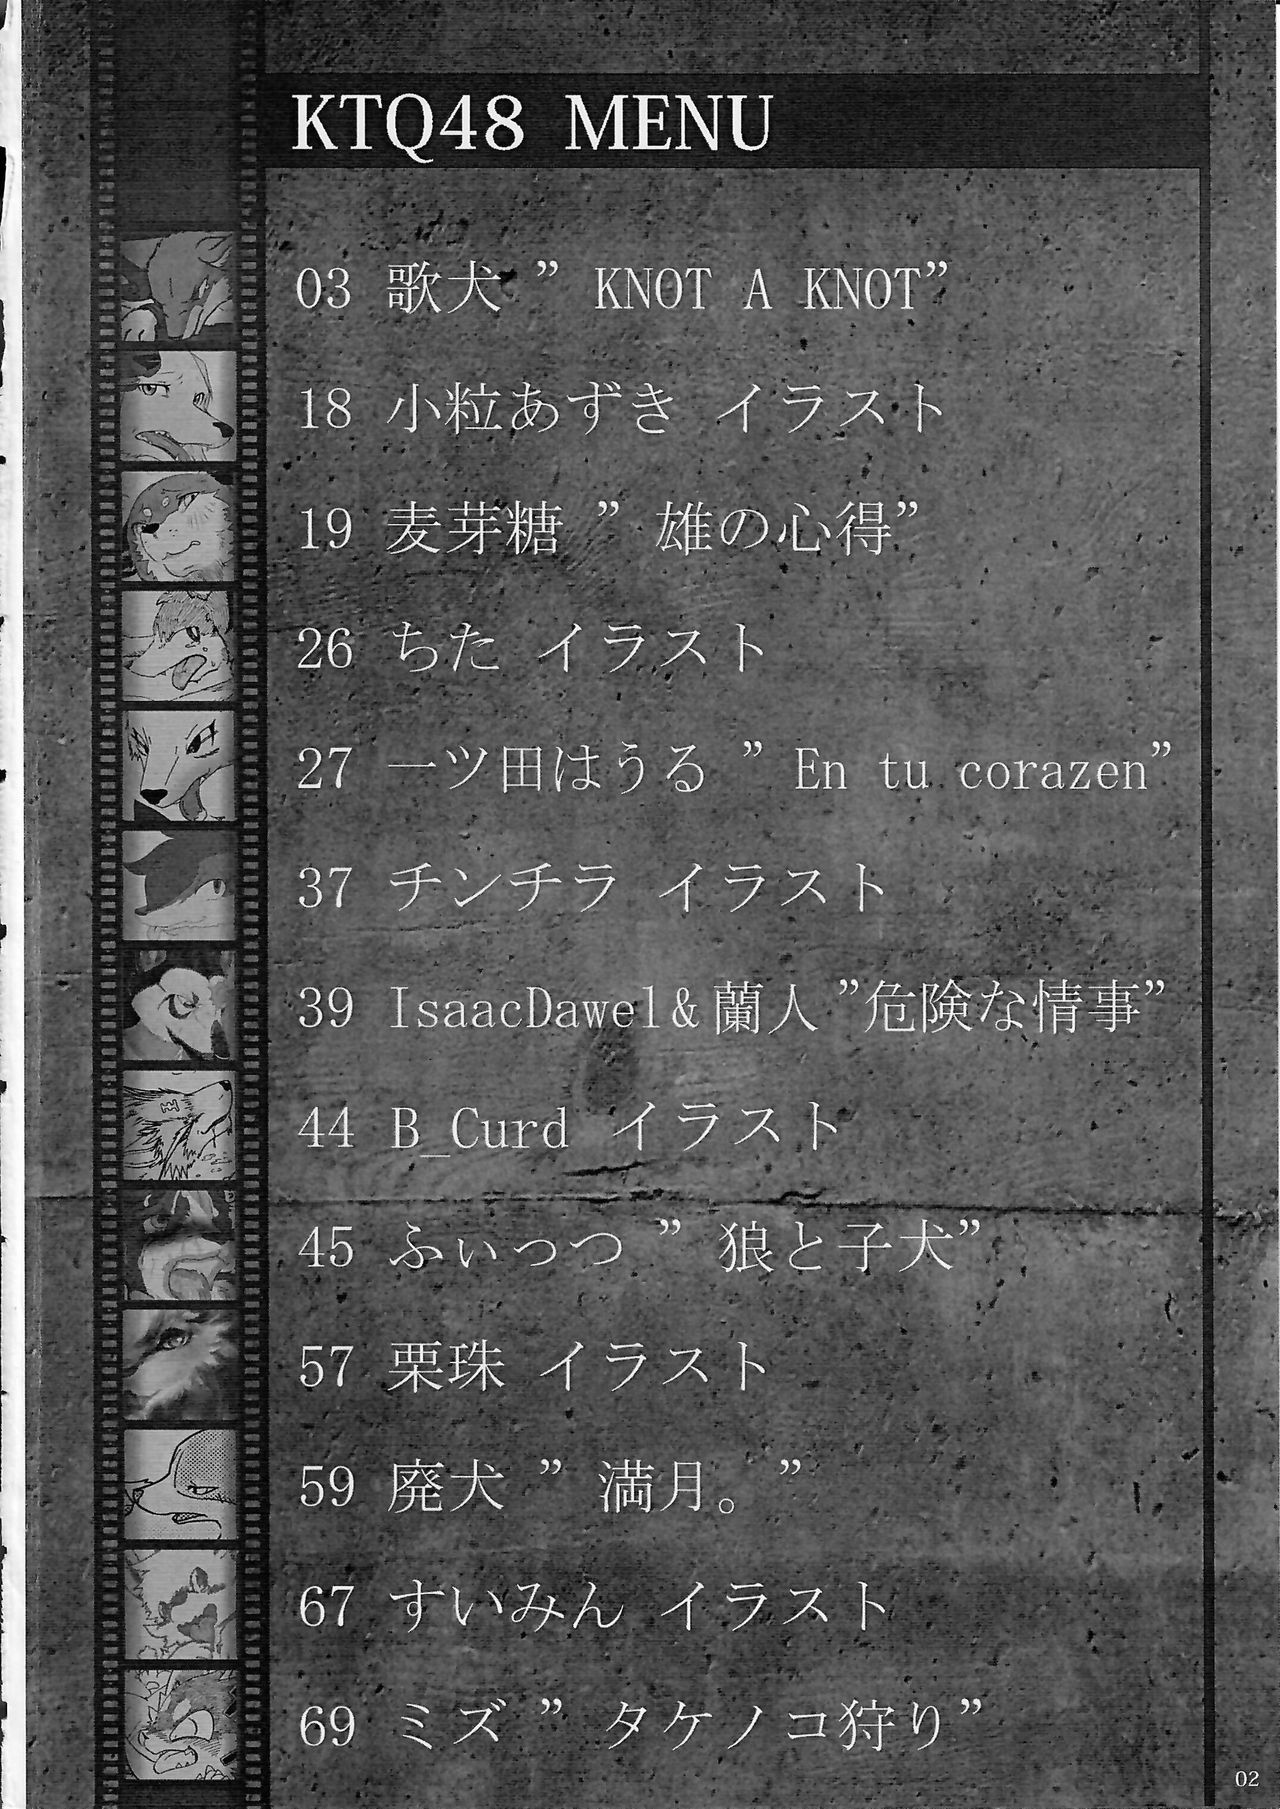 KTQ48 MENU
03 歌犬 ” KNOT A KNOT”
18 小粒あずき イラスト
19 麦芽糖 ” 雄の心得”
26 ちた イラスト
27 一ツ田はうる ” En tu corazen”
37 チンチラ イラスト
39 IsaacDawel＆蘭人 ”危険な情事”
44 B_Curd イラスト
45 ふぃっつ ” 狼と子犬”
57 栗珠 イラスト
59 廃犬 ” 満月。 ”
67 すいみん イラスト
69 ミズ ” タケノコ狩り”
02